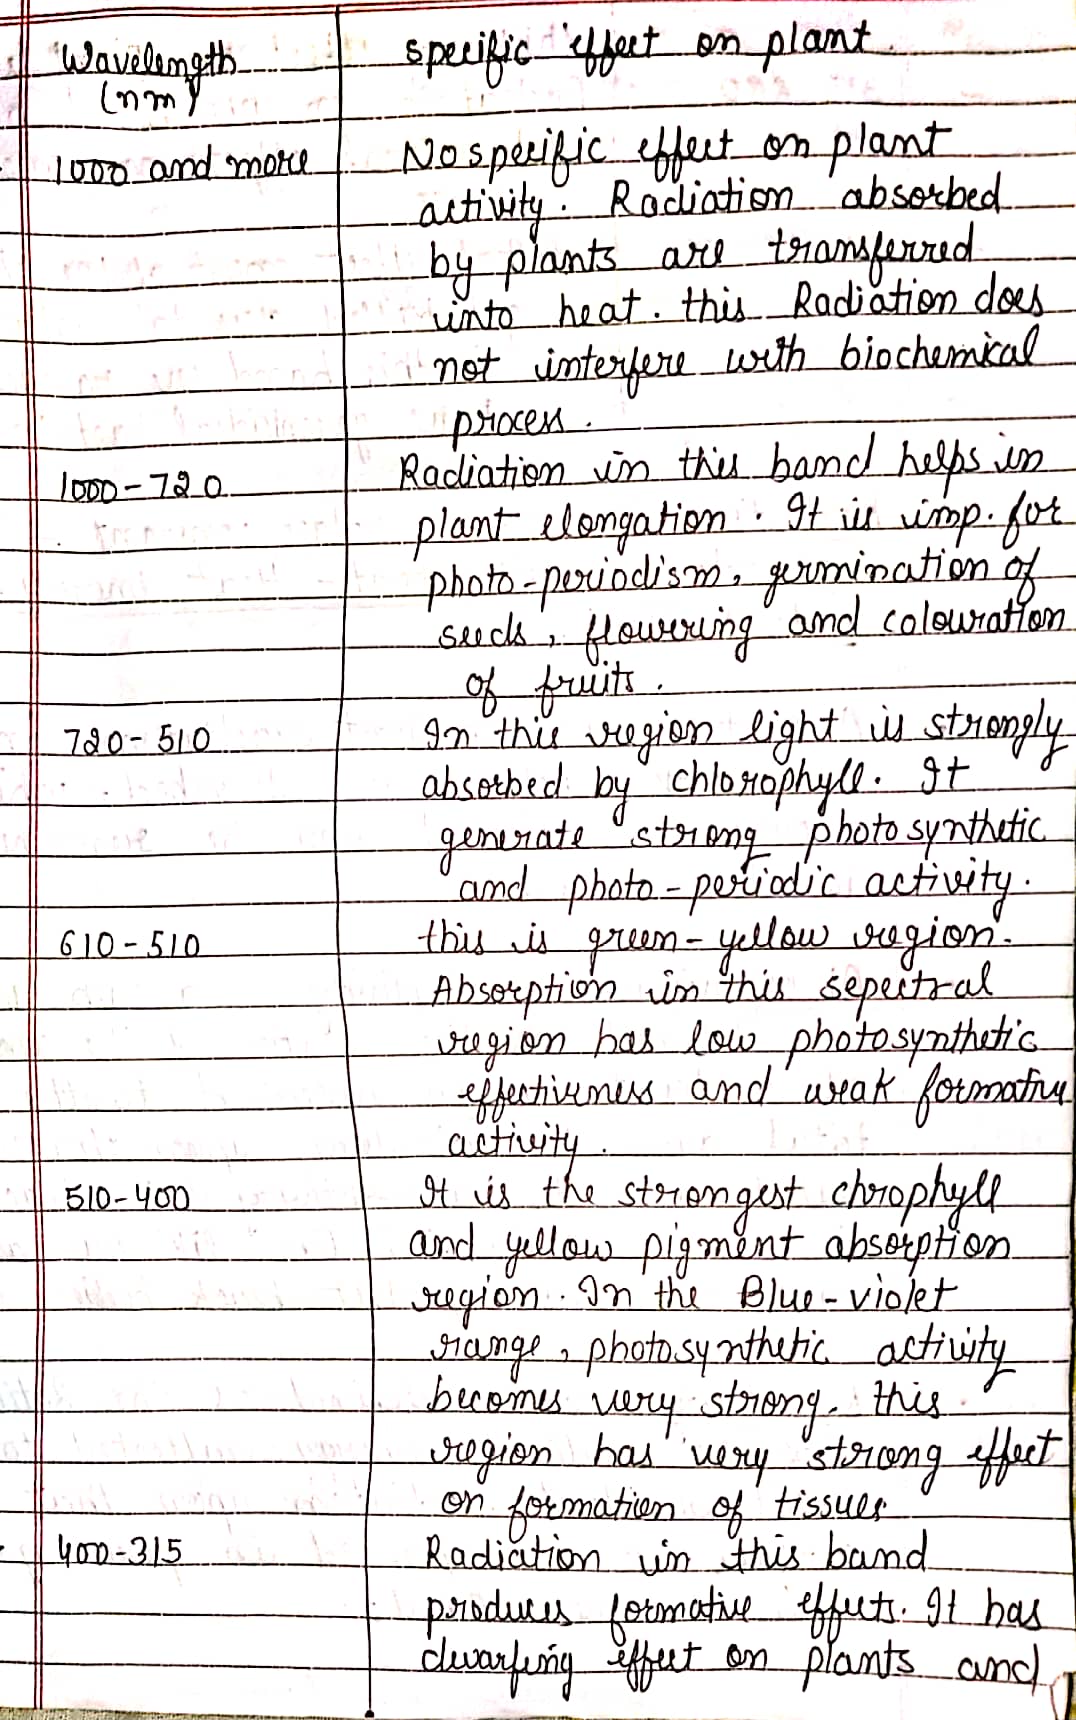 Wavelength specific effect on plant
(nm)
1000 and more No specific effect on plant
activity. Radiation absorbed
by plants are transferred
into heat. this Radiation does
not interfere with biochemical
process.
1000-720 Radiation in this band helps in
plant elongation. It is imp. for
photo-periodism, germination of
seeds, flowering and colouration
of fruits.
720-510 In this region light is strongly
absorbed by chlorophyll. It
generate strong photosynthetic
and photo-periodic activity.
610-510 this is green-yellow region.
Absorption in this sepectral
region has low photosynthetic
effectiveness and weak formative
activity.
510-400 It is the strongest chrophyll
and yellow pigment absorption
region. In the Blue-violet
range, photosynthetic activity
becomes very strong. this
region has very strong effect
on formation of tissues
400-315 Radiation in this band
produces formative effects. It has
dwarfing effect on plants and